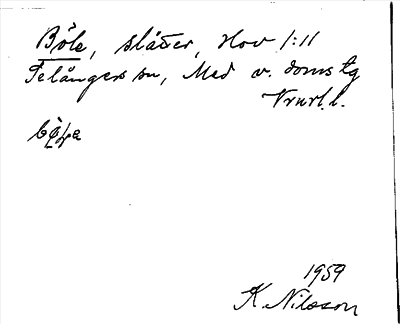 Böle, slåtter, Hov 1:11
Selångers sn, Med v. doms tg
Vnrl.l.
1959
K. Nilsson